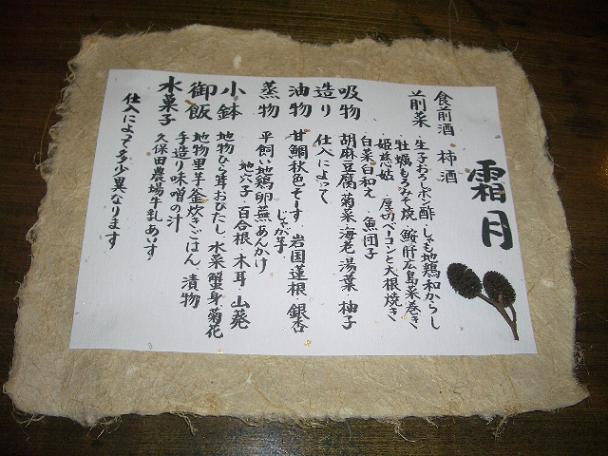 霜月
食前酒 柿酒
前菜 生子おろしポン酢・しゃも地鶏和からし
牡蠣もろみそ焼・鮟肝広島菜巻き
姫慈姑 厚切ベーコンと大根焼き
白菜白和え 魚団子
吸物 胡麻豆腐・菊菜・海老・湯葉・柚子
造り 仕入によって
油物 甘鯛秋色ソース・岩国蓮根・銀杏
じゃが芋
蒸物 平飼い地鶏卵蕪あんかけ
地穴子・百合根・木耳・山葵
小鉢 地物ひら茸おひたし 水菜蟹身菊花
御飯 地物里芋釜炊きごはん 漬物
手造り味噌の汁
水菓子 久保田農場牛乳あいす
仕入によって多少異なります